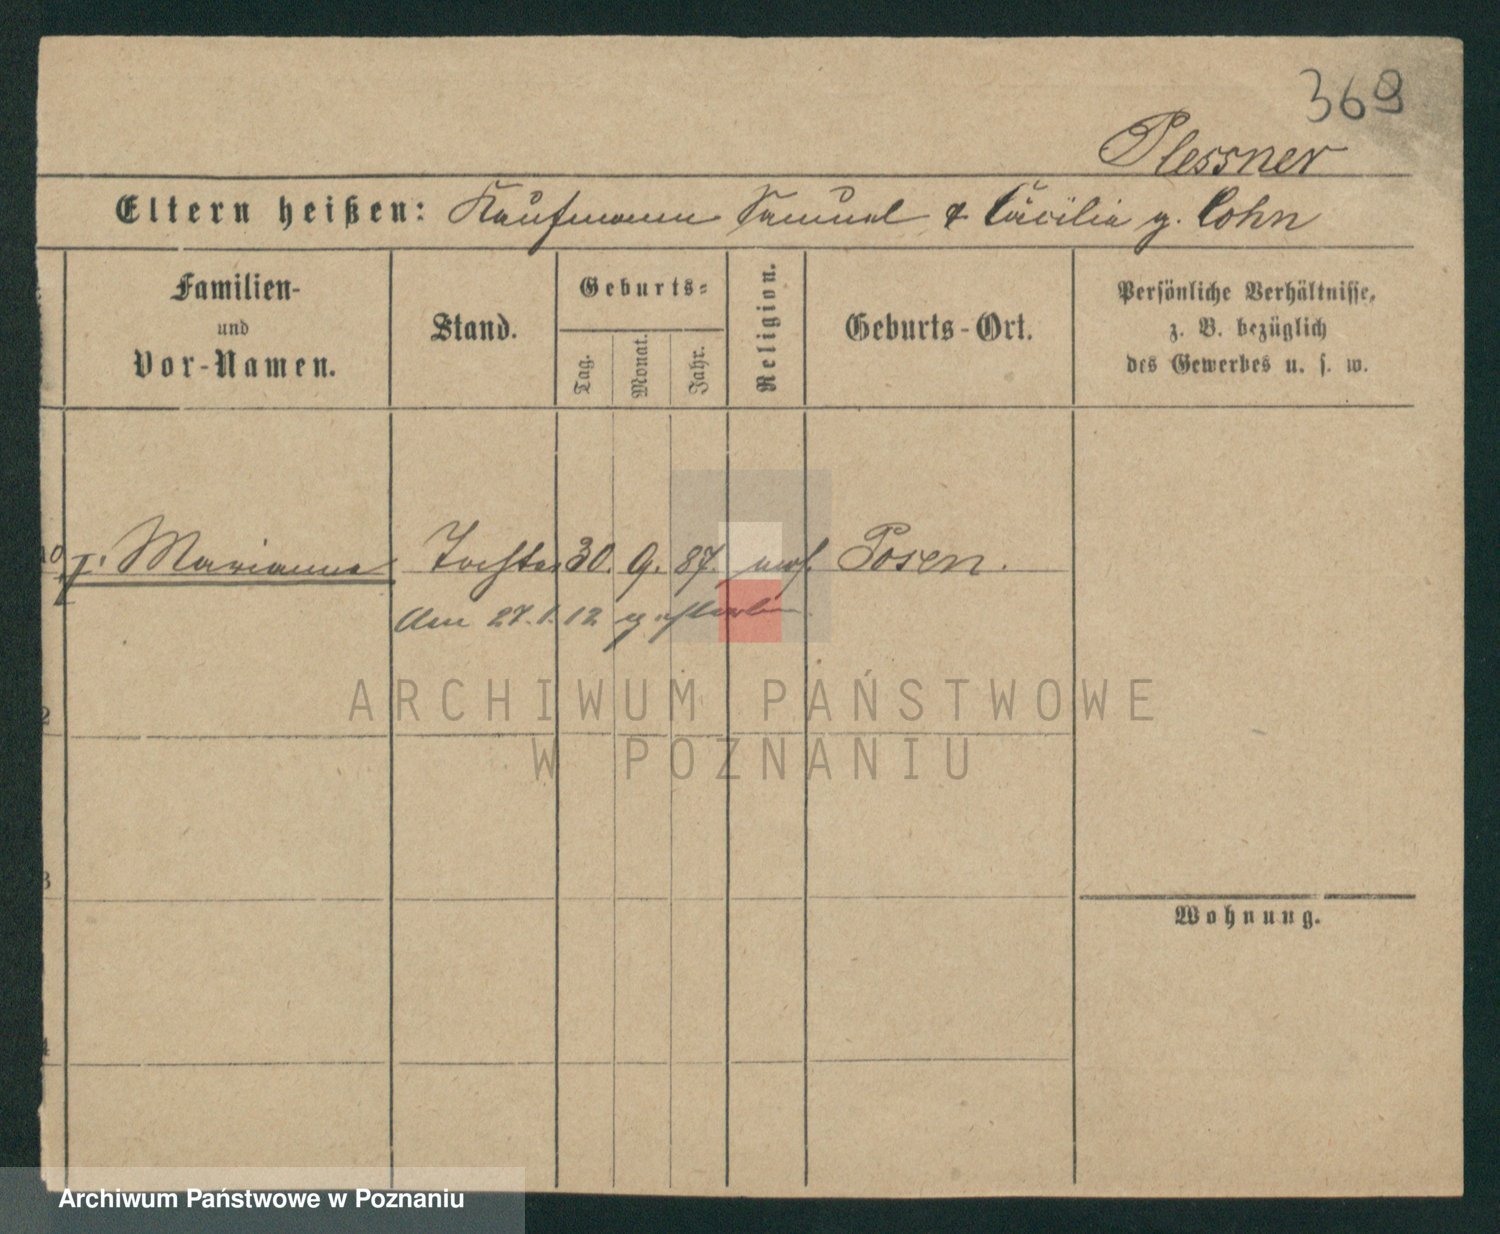 369
Plessner
Eltern heißen: Kaufmann Samuel & Cäcilia g. Cohn
Familien-
und
Vor-Namen.
Stand.
Geburts-
Tag.
Monat.
Jahr.
Religion.
Geburts-Ort.
Persönliche Verhältnisse,
z. B. bezüglich
des Gewerbes u. s. w.
Marianne Tochter 30. 9. 87. mos. Posen.
Am 27.1.12 gestorben
2
3
4
Wohnung.
ARCHIWUM PAŃSTWOWE
W POZNANIU
Archiwum Państwowe w Poznaniu